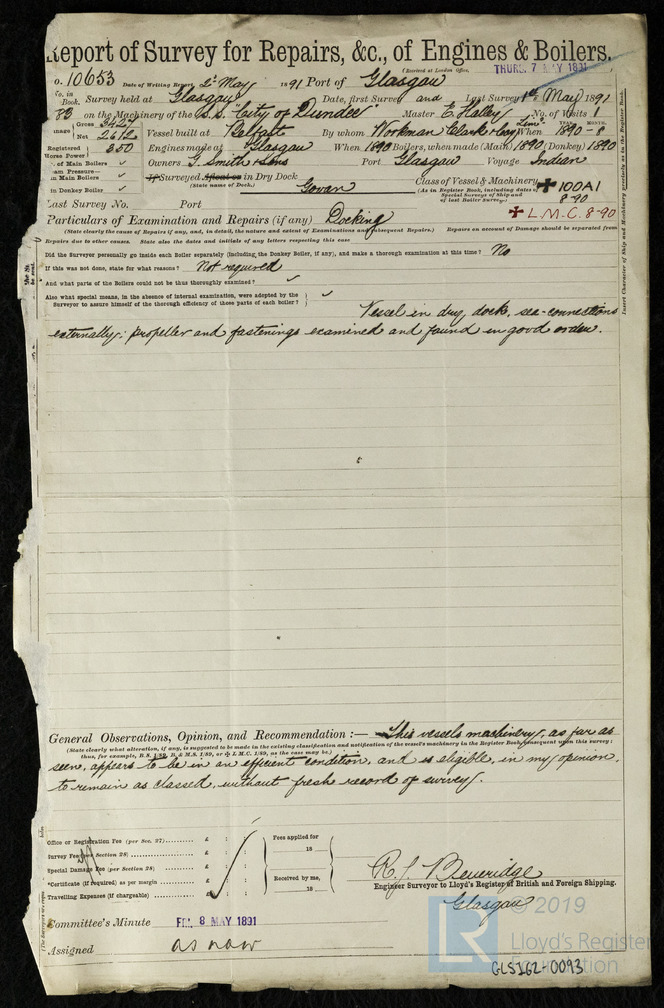 Report of Survey for Repairs, &c., of Engines & Boilers.
(Received at London Office,
THURS. 7 MAY 1891
o. 10653 Date of Writing Report 2d May 1891 Port of Glasgow
No. in Book.
83
Survey held at Glasgow Date, first Survey and Last Survey 1st May 1891
on the Machinery of the S.S. "City of Dundee" Master E. Halley No. of Visits 1
Gross 3427
Net 2612
Vessel built at Belfast By whom Workman Clark & Coy Lim. When 1890-8
YEAR. MONTH.
Registered Horse Power 350 Engines made at Glasgow When 1890 Boilers, when made (Main) 1890 (Donkey) 1890
. of Main Boilers ✓ Owners G. Smith & Sons Port Glasgow Voyage Indian
am Pressure—
in Main Boilers ✓
in Donkey Boiler ✓
If Surveyed Afloat or in Dry Dock
(State name of Dock.)
Govan
Class of Vessel & Machinery
(As in Register Book, including dates of Special Surveys of Ship and of last Boiler Survey.)
✠ 100A1
8-90
✠ L.M.C. 8-90
Last Survey No. Port
Particulars of Examination and Repairs (if any) Docking
(State clearly the cause of Repairs if any, and, in detail, the nature and extent of Examinations and subsequent Repairs.) Repairs on account of Damage should be separated from
Repairs due to other causes. State also the dates and initials of any letters respecting this case
Did the Surveyor personally go inside each Boiler separately (including the Donkey Boiler, if any), and make a thorough examination at this time? No
If this was not done, state for what reasons? Not required
And what parts of the Boilers could not be thus thoroughly examined? ✓
Also what special means, in the absence of internal examination, were adopted by the
Surveyor to assure himself of the thorough efficiency of those parts of each boiler? ✓
Vessel in dry dock, sea-connections
externally; propeller and fastenings examined and found in good order.
Insert Character of Ship and Machinery precisely as in the Register Book.
General Observations, Opinion, and Recommendation :— This vessels machinery, as far as
(State clearly what alteration, if any, is suggested to be made in the existing classification and notification of the vessel's machinery in the Register Book, consequent upon this survey:
thus, for example, B.S. 1/89, B. & M.S. 1/89, or ✠ L.M.C. 1/89, as the case may be.)
seen, appears to be in an efficient condition, and is eligible, in my opinion,
to remain as classed, without fresh record of survey.
Office or Registration Fee (per Sec. 27) £ : :
Survey Fee (per Section 28) £ : :
Special Damage Fee (per Section 28) £ : :
*Certificate (if required) as per margin £ : :
Travelling Expenses (if chargeable) £ : :
Fees applied for
18
Received by me,
18
R. J. Beveridge
Engineer Surveyor to Lloyd's Register of British and Foreign Shipping.
Glasgow
Committee's Minute FRI. 8 MAY 1891
Assigned as now
LR
© 2019
Lloyd's Register
Foundation
GLS162-0093